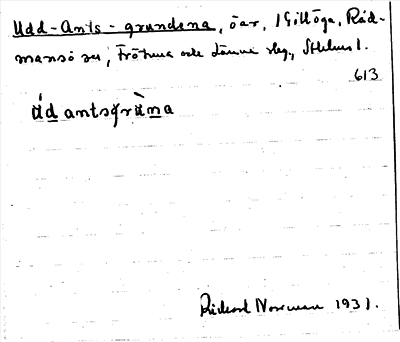 Udd-Ants-grundena, öar, i Gillöga, Råd-
mansö sn, Frötuna och Länna slg, Sthlms l.
613
úd antsgràna
Rickard Norrman 1931.